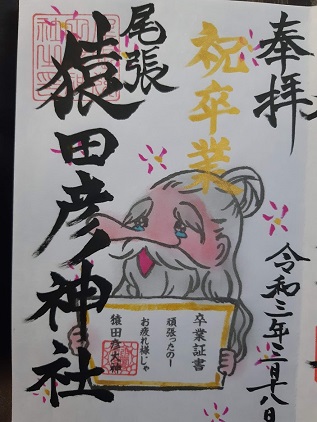 奉拝
令和三年三月十八日
祝卒業
尾張
猿田彦ノ神社
卒業証書
頑張ったのー
お疲れ様じゃ
猿田彦大神